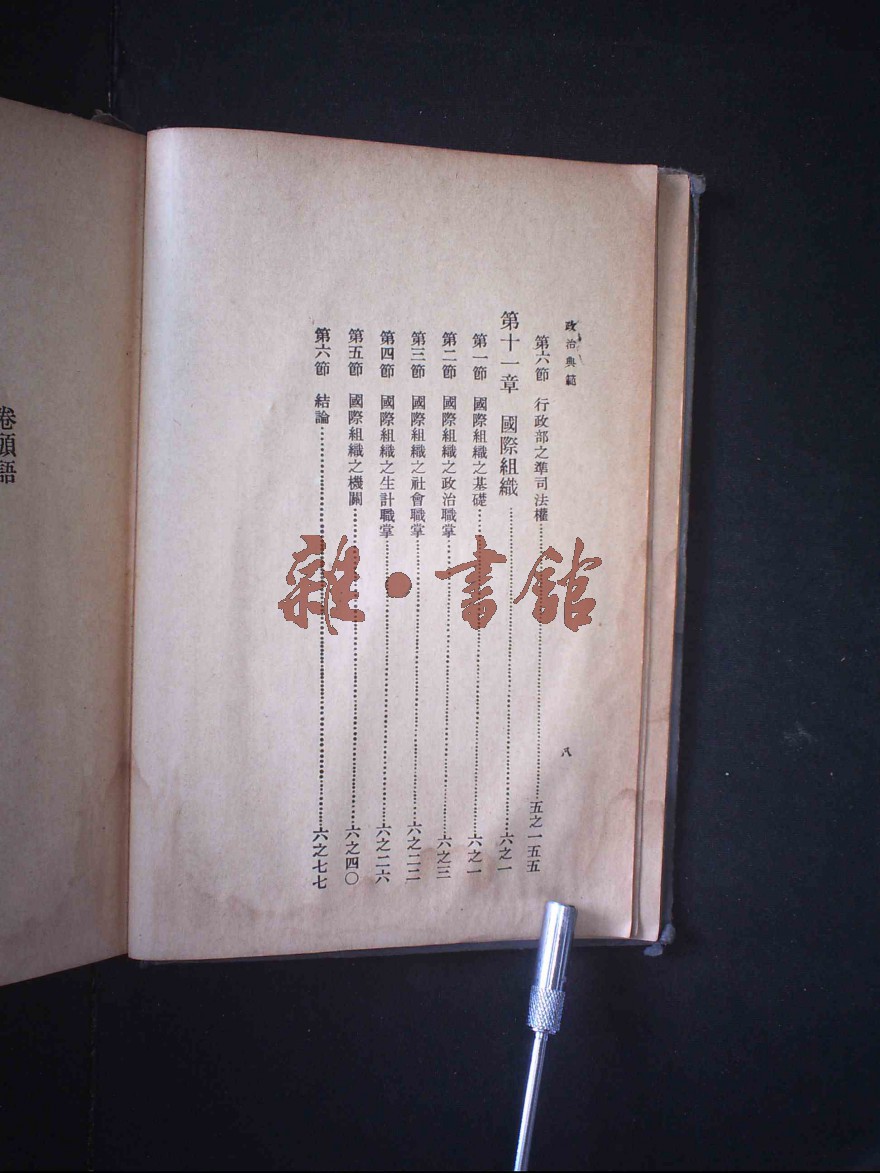 政治典範
八
第六節 行政部之準司法權……五之一五五
第十一章 國際組織……六之一
第一節 國際組織之基礎……六之一
第二節 國際組織之政治職掌……六之三
第三節 國際組織之社會職掌……六之二二
第四節 國際組織之生計職掌……六之二六
第五節 國際組織之機關……六之四〇
第六節 結論……六之七七
卷頭語
雜·書館